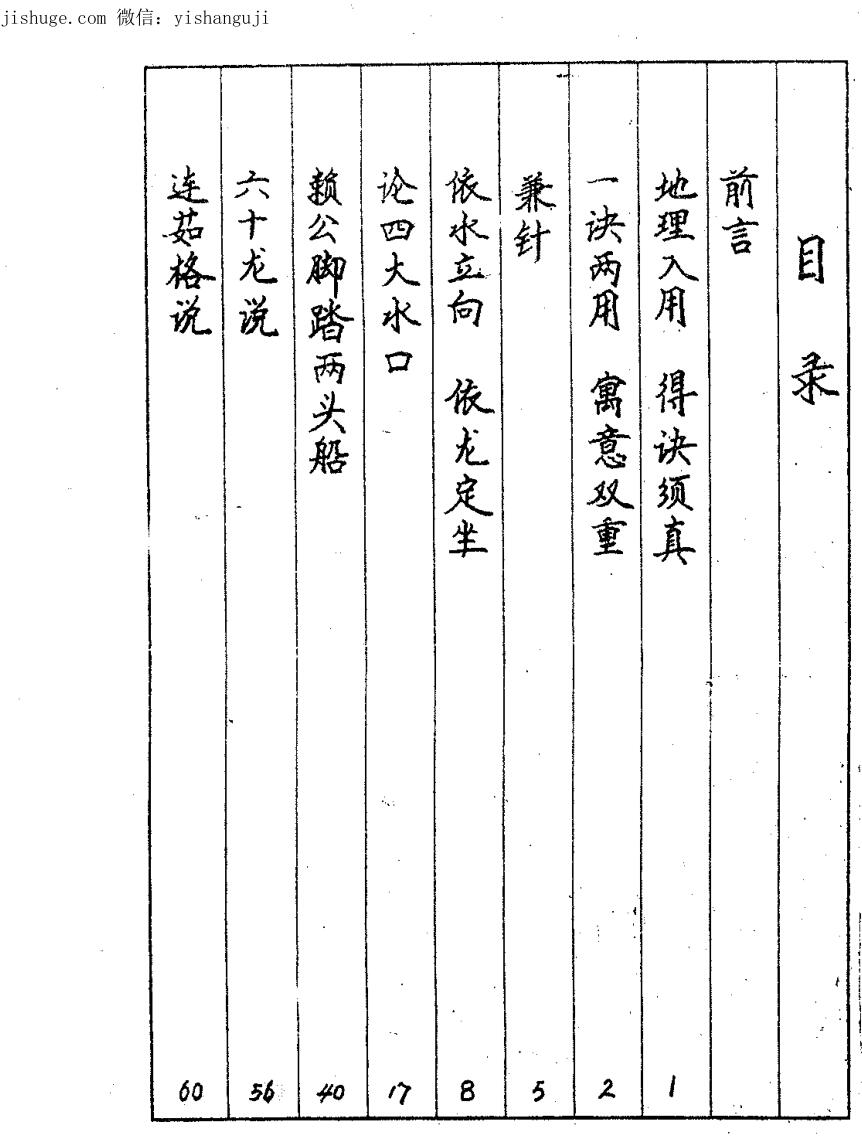 jishuge.com 微信：yishanguji
目录
前言
地理入用 得诀须真 1
一诀两用 寓意双重 2
兼针 5
依水立向 依龙定坐 8
论四大水口 17
赖公脚踏两头船 40
六十龙说 56
连茹格说 60